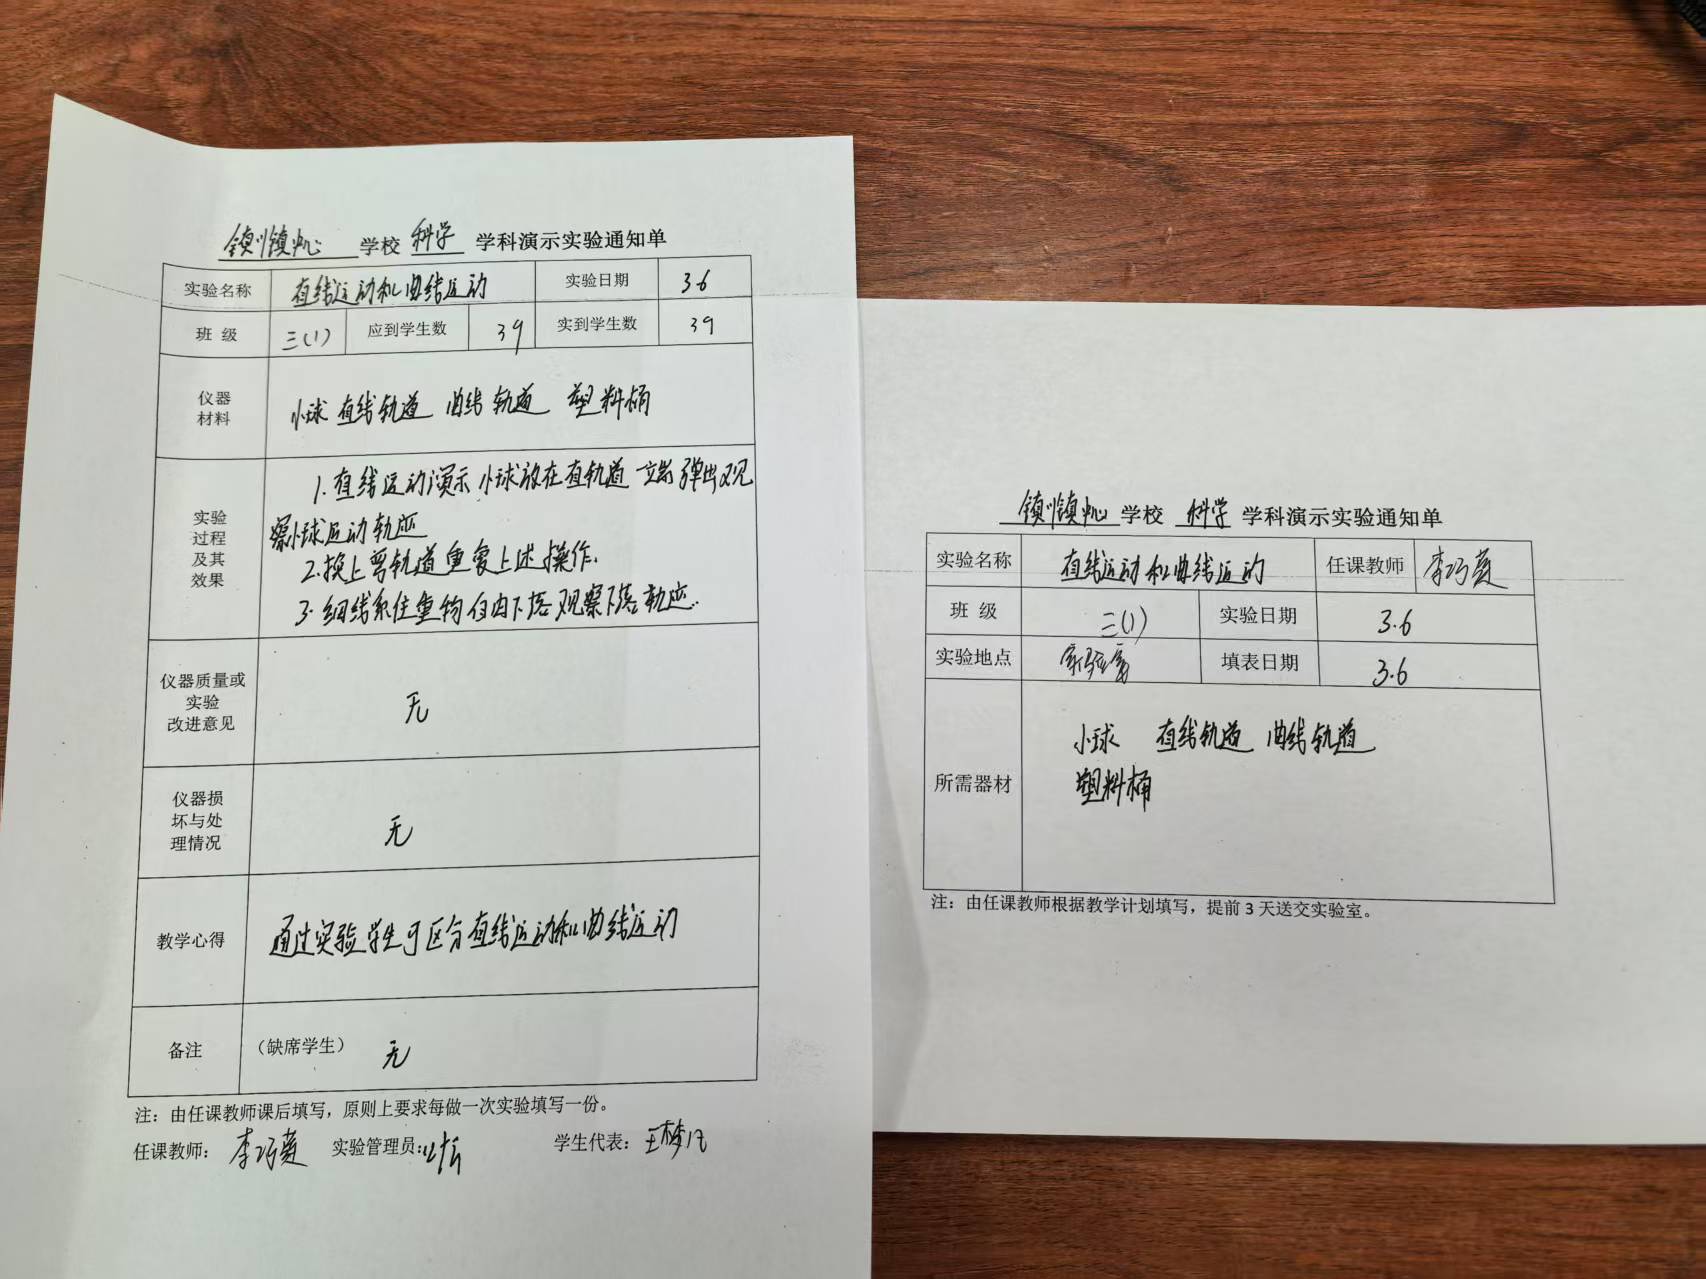 镇川镇中心 学校 科学 学科演示实验通知单
实验名称 直线运动和曲线运动 实验日期 3.6
班 级 三(1) 应到学生数 39 实到学生数 39
仪器
材料
小球 直线轨道 曲线轨道 塑料桶
实验
过程
及其
效果
1.直线运动演示 小球放在直轨道一端弹出观
察小球运动轨迹
2.换上弯轨道重复上述操作.
3.细线系住重物自由下落 观察下落轨迹.
仪器质量或
实验
改进意见
无
仪器损
坏与处
理情况
无
教学心得 通过实验学生可区分直线运动和曲线运动
备注 (缺席学生) 无
注：由任课教师课后填写，原则上要求每做一次实验填写一份。
任课教师： 李巧 实验管理员: 学生代表： 王梦凡
镇川镇中心 学校 科学 学科演示实验通知单
实验名称 直线运动和曲线运动 任课教师 李巧
班 级 三(1) 实验日期 3.6
实验地点 实验室 填表日期 3.6
所需器材
小球 直线轨道 曲线轨道
塑料桶
注：由任课教师根据教学计划填写，提前 3 天送交实验室。